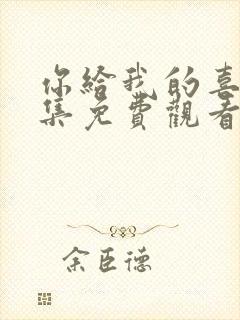 你給我的喜
集免費觀看
余臣德